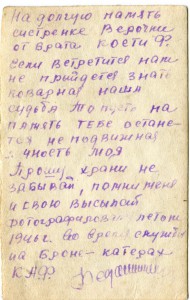 На долгую память
систренке Верочки
от врата Кости Ф.
Если встретится нам
не придется знать
коварная наша
судьба То пусть на
память тебе остане-
тся не подвижная
личность моя
Прошу храни не
забывай, помни меня
и свою высылай
фотографировал летом
1946 г. во время службы
на Броне-катерах
К.А.Ф.